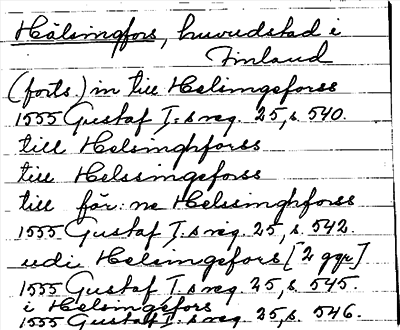 Hälsingfors, huvudstad i
Finland
(forts) in till Helsingeforss
1555 Gustaf I:s reg. 25, s. 540.
till Helsinghforss
till Helssingeforss
till för:ne Helssinghforss
1555 Gustaf I:s reg. 25, s. 542.
udi Helsingefors [2 ggr]
1555 Gustaf I:s reg. 25, s. 545.
i Helsingfors
1555 Gustaf I:s reg. 25, s. 546.